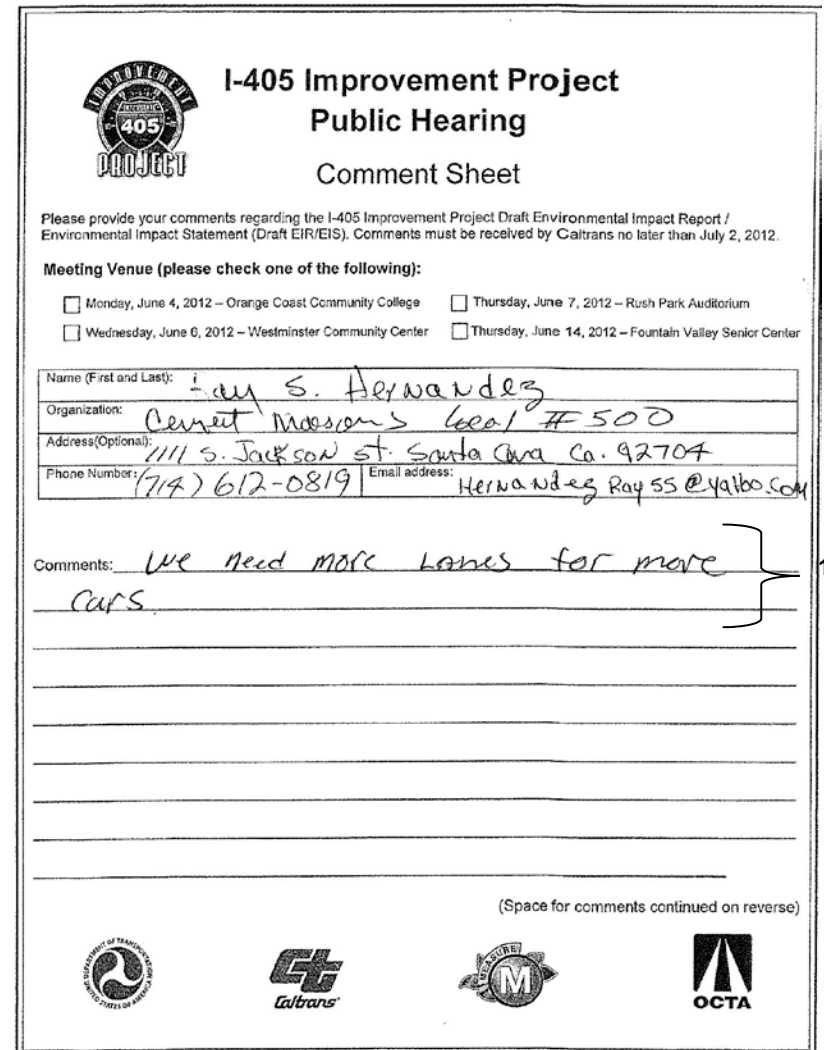 IMPROVEMENT
INTERSTATE
405
PROJECT
I-405 Improvement Project
Public Hearing
Comment Sheet
Please provide your comments regarding the I-405 Improvement Project Draft Environmental Impact Report /
Environmental Impact Statement (Draft EIR/EIS). Comments must be received by Caltrans no later than July 2, 2012.
Meeting Venue (please check one of the following):
Monday, June 4, 2012 – Orange Coast Community College
Thursday, June 7, 2012 – Rush Park Auditorium
Wednesday, June 6, 2012 – Westminster Community Center
Thursday, June 14, 2012 – Fountain Valley Senior Center
Name (First and Last): S. Hernandez
Organization: Local #500
Address(Optional): 1111 S. Jackson st. Santa Ca. 92704
Phone Number: (714) 612-0819 Email address: Hernandez Ray 55 @yahoo.com
Comments: We need more Lanes for more
Cars
(Space for comments continued on reverse)
DEPARTMENT OF TRANSPORTATION
UNITED STATES OF AMERICA
Caltrans
MEASURE
M
OCTA